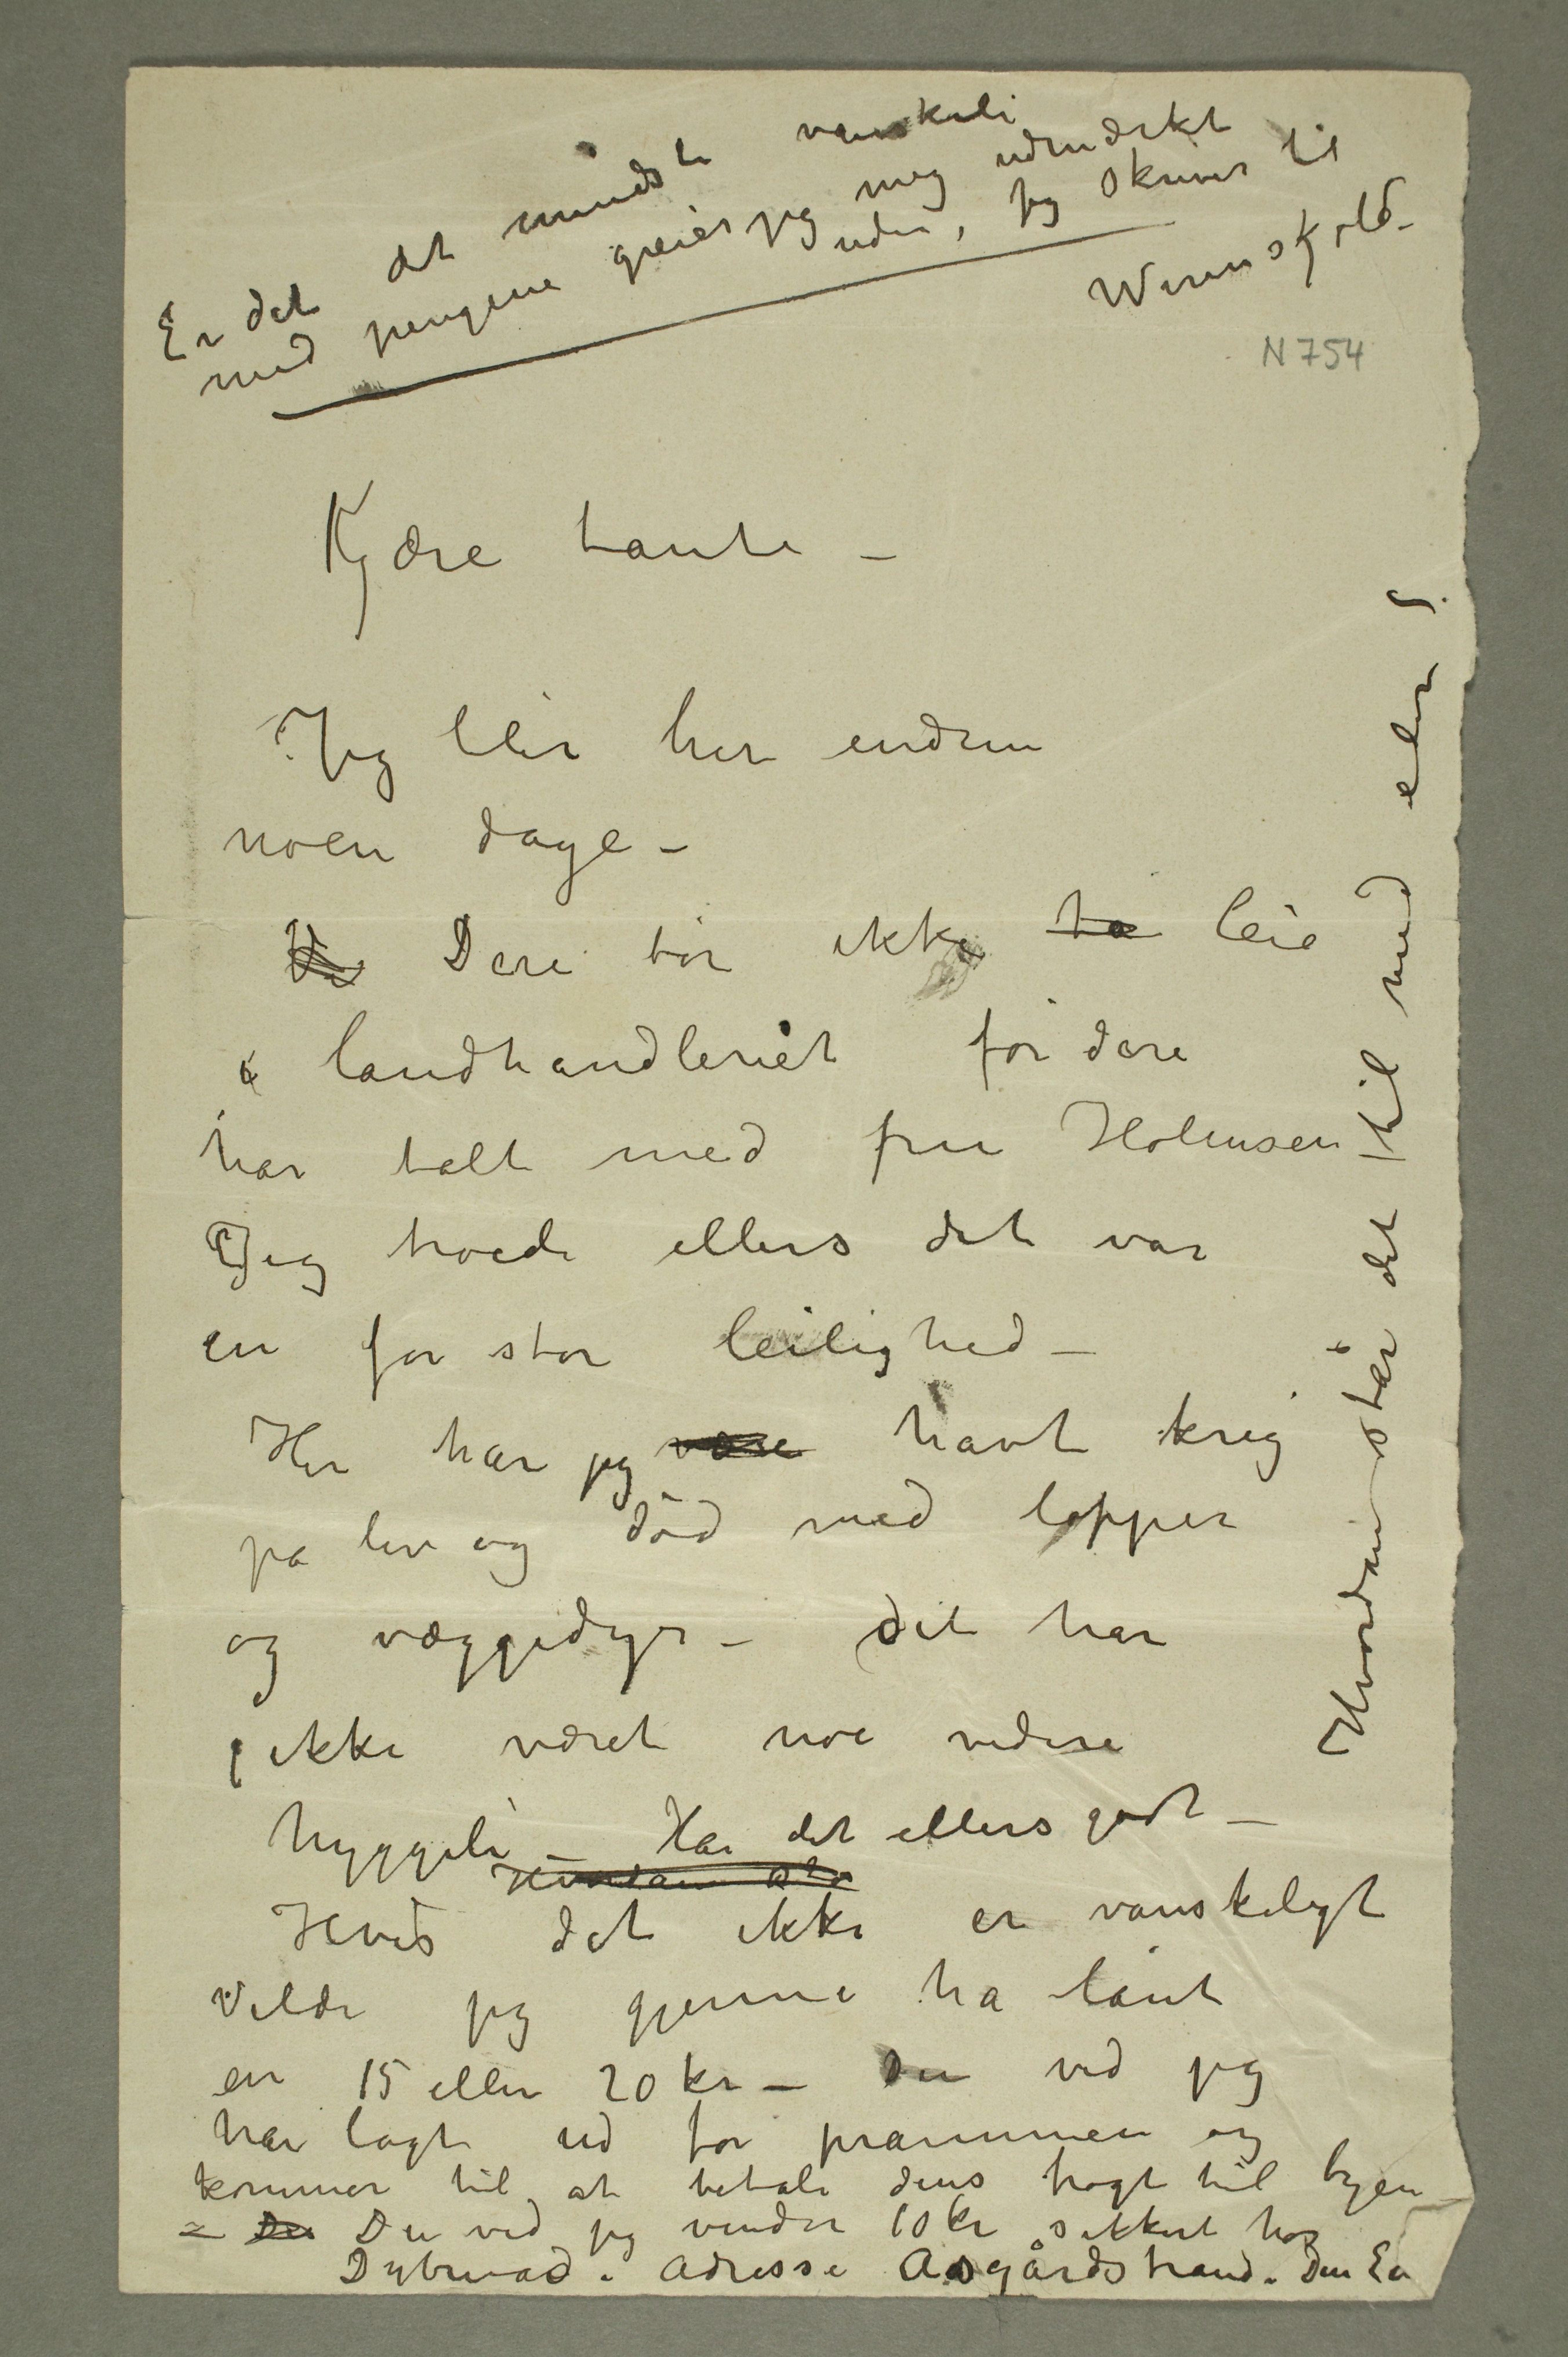 Er det det mindste vanskeli
med pengene greier jeg mig udmærkt
uden, jeg skriver til
Werenskjold.
N 754
Kjære tante –
Jeg blir her endnu
noen dage –
Dere bør ikke ta leie
i landhandleriet før dere
har talt med fru Holmsen
Jeg troede ellers det var
en for stor leilighed –
Her har jeg være havt krig
på liv og død med lopper
og væggedyr – det har
ikke været noe videre
hyggeli – Har det ellers godt –
Hvordan står
Hvis det ikke er vanskeligt
vilde jeg gjerne ha lånt
en 15 eller 20 kr – Du ved jeg
har lagt ud for prammen og
kommer til at betale dens fragt til byen –
– Du Du ved jeg vinder 10 kr sikkert hos
Dybwad. Adresse Åsgårdstrand. Din Ed
Hvordan står det til med eder?